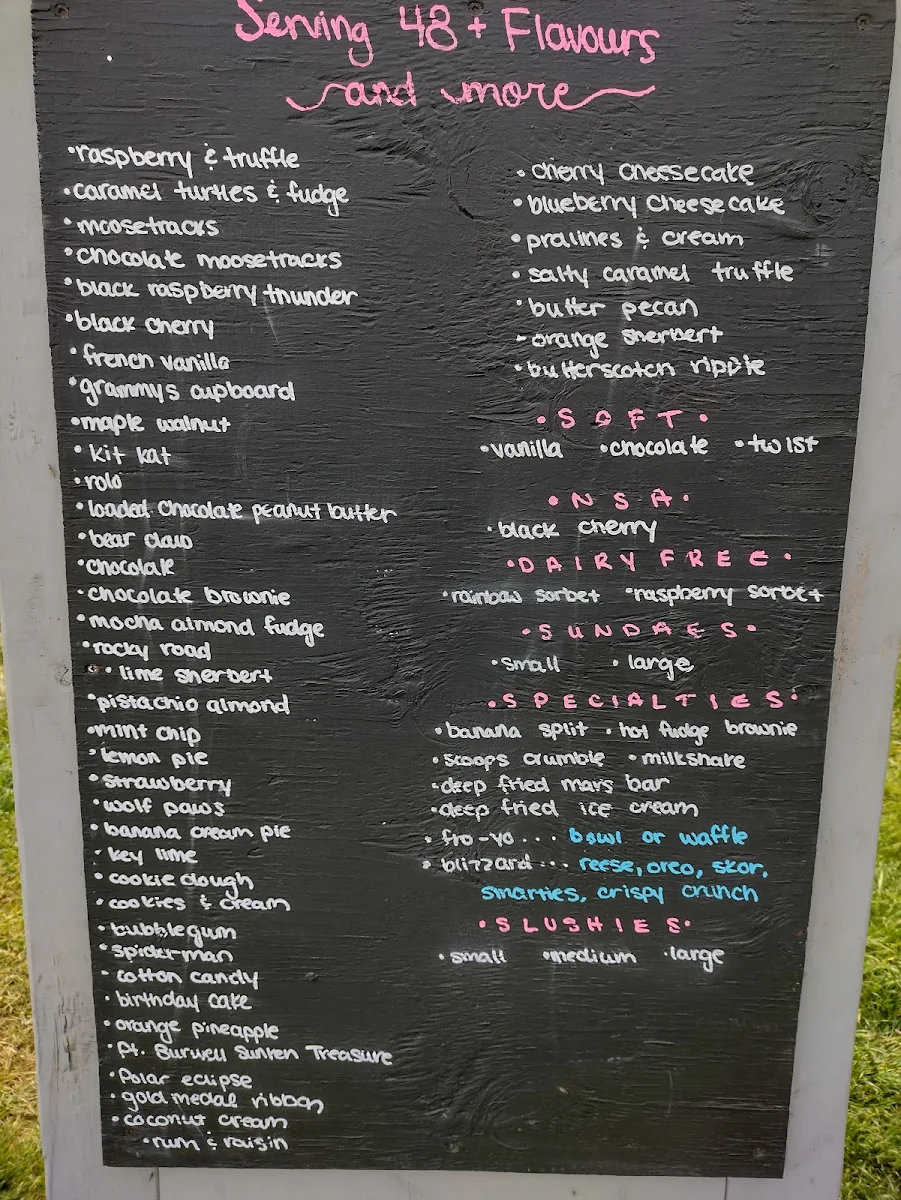 Serving 48+ Flavours
and more
•raspberry & truffle
•caramel turtles & fudge
•moosetracks
•chocolate moosetracks
•black raspberry thunder
•black cherry
•french vanilla
•grammys cupboard
•maple walnut
•kit kat
•rolo
•loaded chocolate peanut butter
•bear claw
•chocolate
•chocolate brownie
•mocha almond fudge
•rocky road
•lime sherbert
•pistachio almond
•mint chip
•lemon pie
•strawberry
•wolf paws
•banana cream pie
•key lime
•cookie dough
•cookies & cream
•bubblegum
•spiderman
•cotton candy
•birthday cake
•orange pineapple
•Pt. Burwell Sunken Treasure
•Polar eclipse
•gold medal ribbon
•coconut cream
•rum & raisin
•cherry cheesecake
•blueberry cheesecake
•pralines & cream
•salty caramel truffle
•butter pecan
-orange sherbert
•butterscotch ripple
•SOFT•
•vanilla •chocolate •twist
•NSA•
•black cherry
•DAIRY FREE•
•rainbow sorbet •raspberry sorbet
•SUNDAES•
•small •large
•SPECIALTIES•
•banana split •hot fudge brownie
•scoops crumble •milkshake
•deep fried mars bar
•deep fried ice cream
•fro-yo... bowl or waffle
•blizzard... reese, oreo, skor,
smarties, crispy crunch
•SLUSHIES•
•small •medium •large